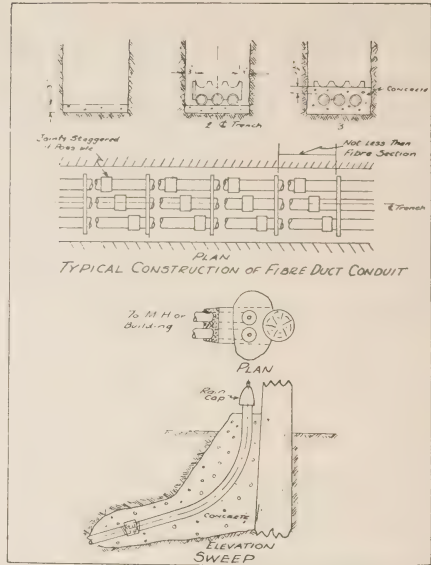 Concrete
2
℄ Trench
3
Joints Staggered
if Possible
Not Less Than
Fibre Section
℄ Trench
PLAN
TYPICAL CONSTRUCTION OF FIBRE DUCT CONDUIT
To M H or
Building
PLAN
Rain
Cap
CONCRETE
ELEVATION
SWEEP